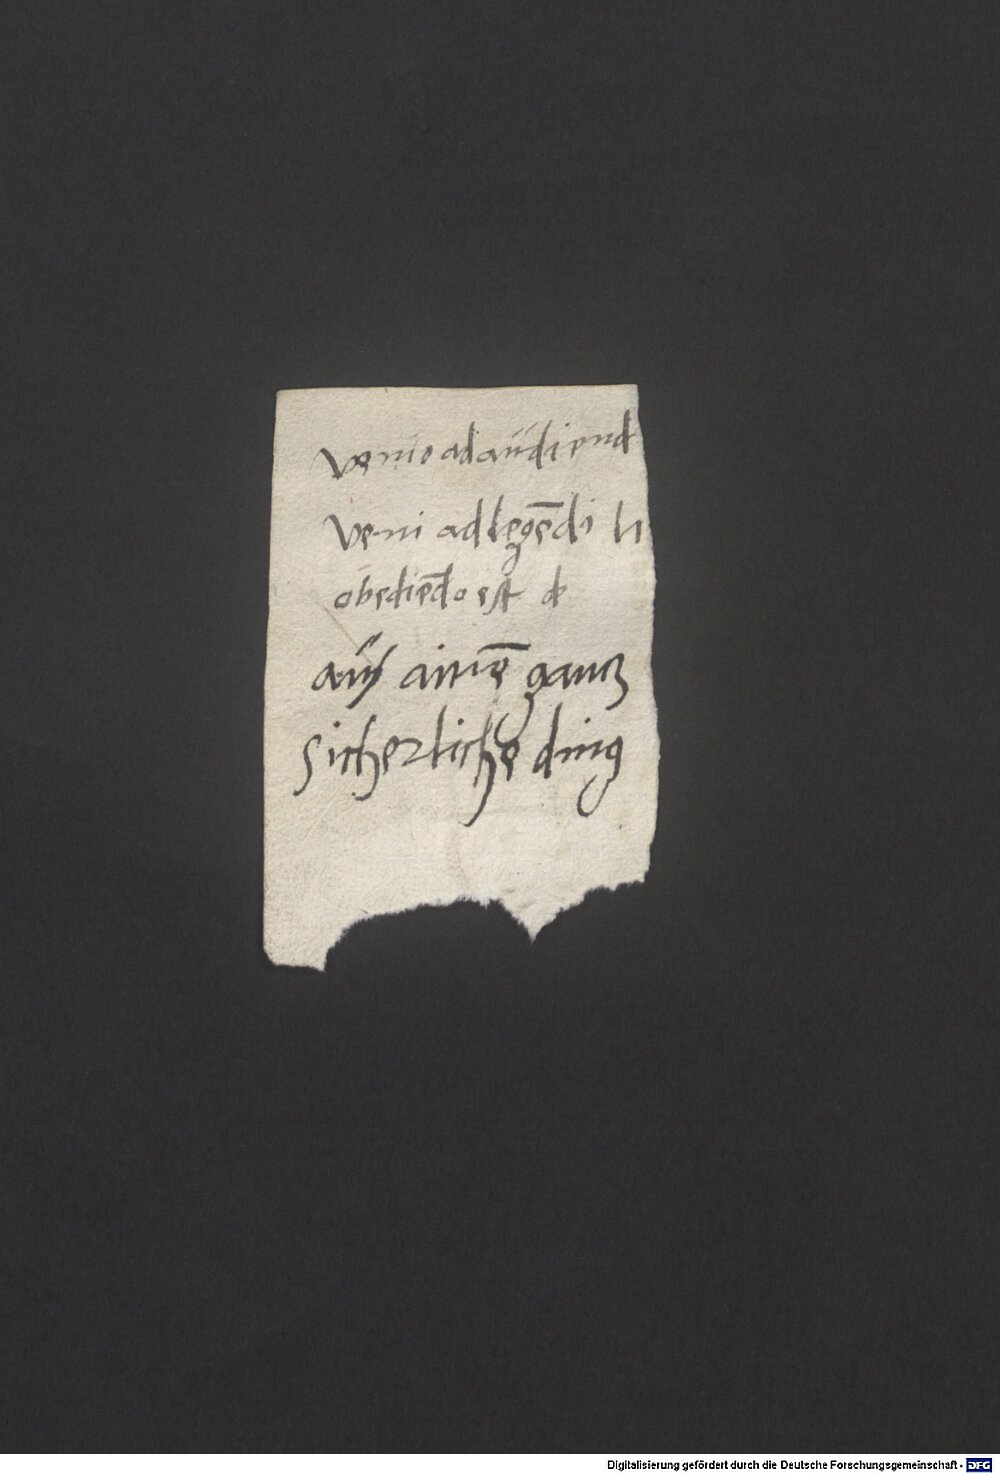 venio ad aúdiend
veni ad legēdi li
obediēdo est de
aúß ainē gantz
sicherliche ding
Digitalisierung gefördert durch die Deutsche Forschungsgemeinschaft - DFG